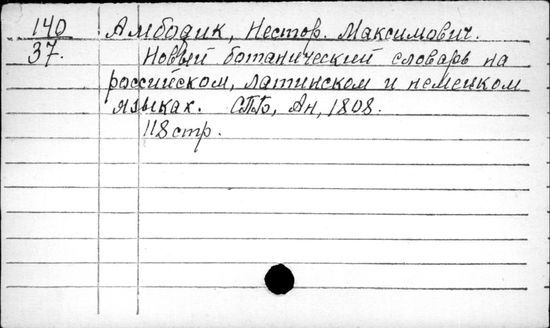 140 Амбодик, Нестор. Максимович.
37. Новый ботанический словарь на
российском, латинском и немецком
языках. СПб, Ан, 1808.
118 стр.